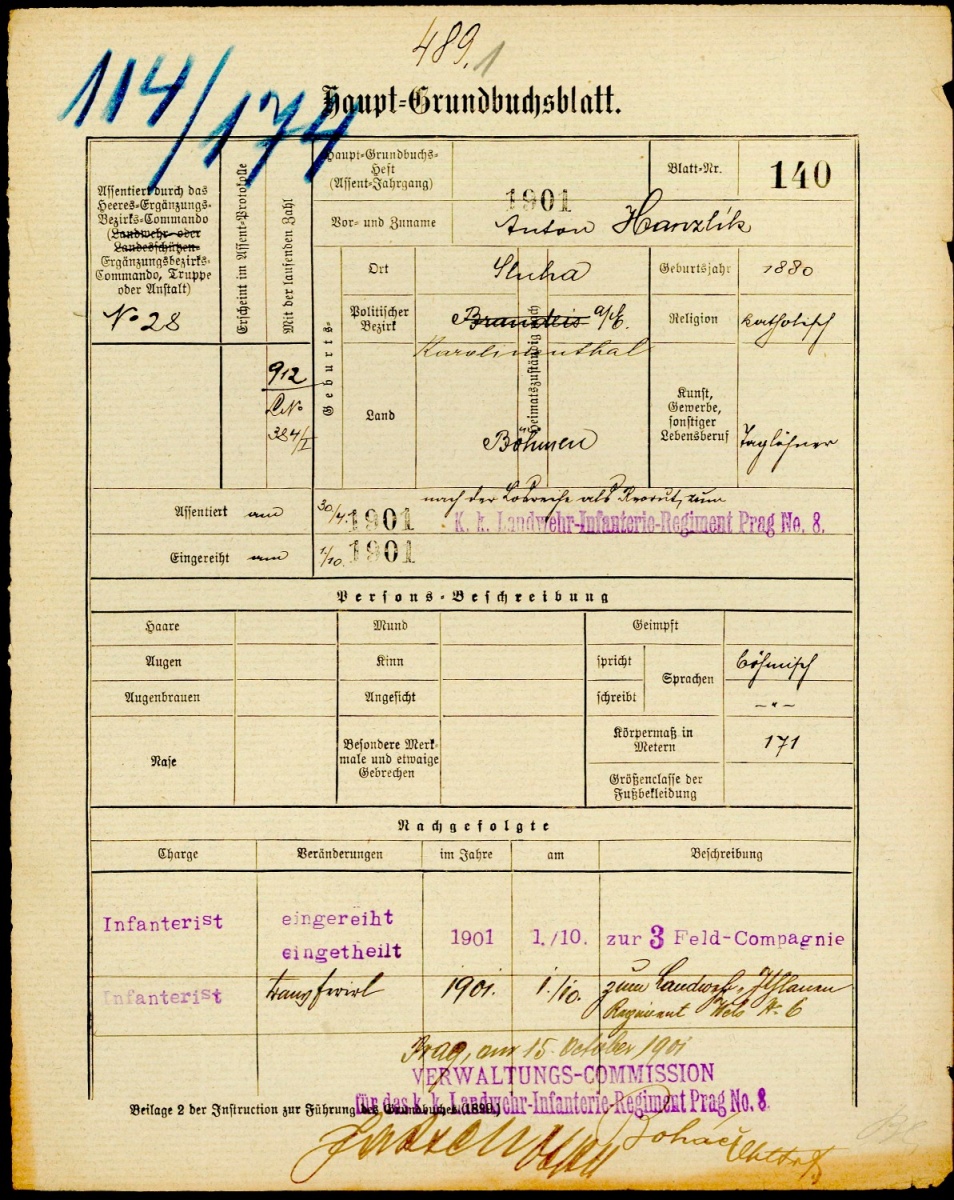 489.
1
114/174
Haupt-Grundbuchsblatt.
Assentiert durch das
Heeres-Ergänzungs-
Bezirks-Commando
(Landwehr- oder
Landesschützen-
Ergänzungsbezirks-
Commando, Truppe
oder Anstalt)
No 28
Erscheint im Assent-Protokolle
Mit der laufenden Zahl
912
384/I
Haupt-Grundbuchs-
Heft
(Assent-Jahrgang)
1901
Blatt-Nr.
140
Vor- und Zuname
Anton Hanzlik
Geburts-
Heimatszuständig
Ort
Sluha
Geburtsjahr
1880
Politischer
Bezirk
Brandeis a/E.
Karolinenthal
Religion
katholisch
Land
Böhmen
Kunst,
Gewerbe,
sonstiger
Lebensberuf
Taglöhner
Assentiert am
30/4. 1901
nach der Losreihe als Recrut, zum
K. k. Landwehr-Infanterie-Regiment Prag No. 8.
Eingereiht am
1/10. 1901
Persons-Beschreibung
Haare
Mund
Geimpft
Augen
Kinn
spricht
Sprachen
böhmisch
Augenbrauen
Angesicht
schreibt
-"-
Nase
Besondere Merk-
male und etwaige
Gebrechen
Körpermaß in
Metern
171
Größenclasse der
Fußbekleidung
Nachgefolgte
Charge Veränderungen im Jahre am Beschreibung
Infanterist eingereiht
eingetheilt 1901 1./10. zur 3 Feld-Compagnie
Infanterist transferirt 1901. 1./10. zum Landweh. Uhlanen
Regiment Wels No 6
Prag, am 15. October 1901
VERWALTUNGS-COMMISSION
für das k. k. Landwehr-Infanterie-Regiment Prag No. 8.
Beilage 2 der Instruction zur Führung des Grundbuches (1899.)
Boháč